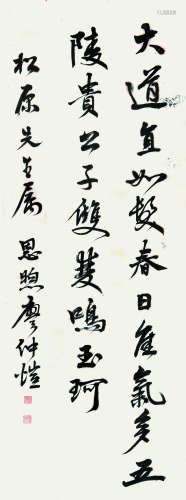 大道直如髮春日佳氣多五
陵貴公子雙雙鳴玉珂
松原先生属 恩煦廖仲愷